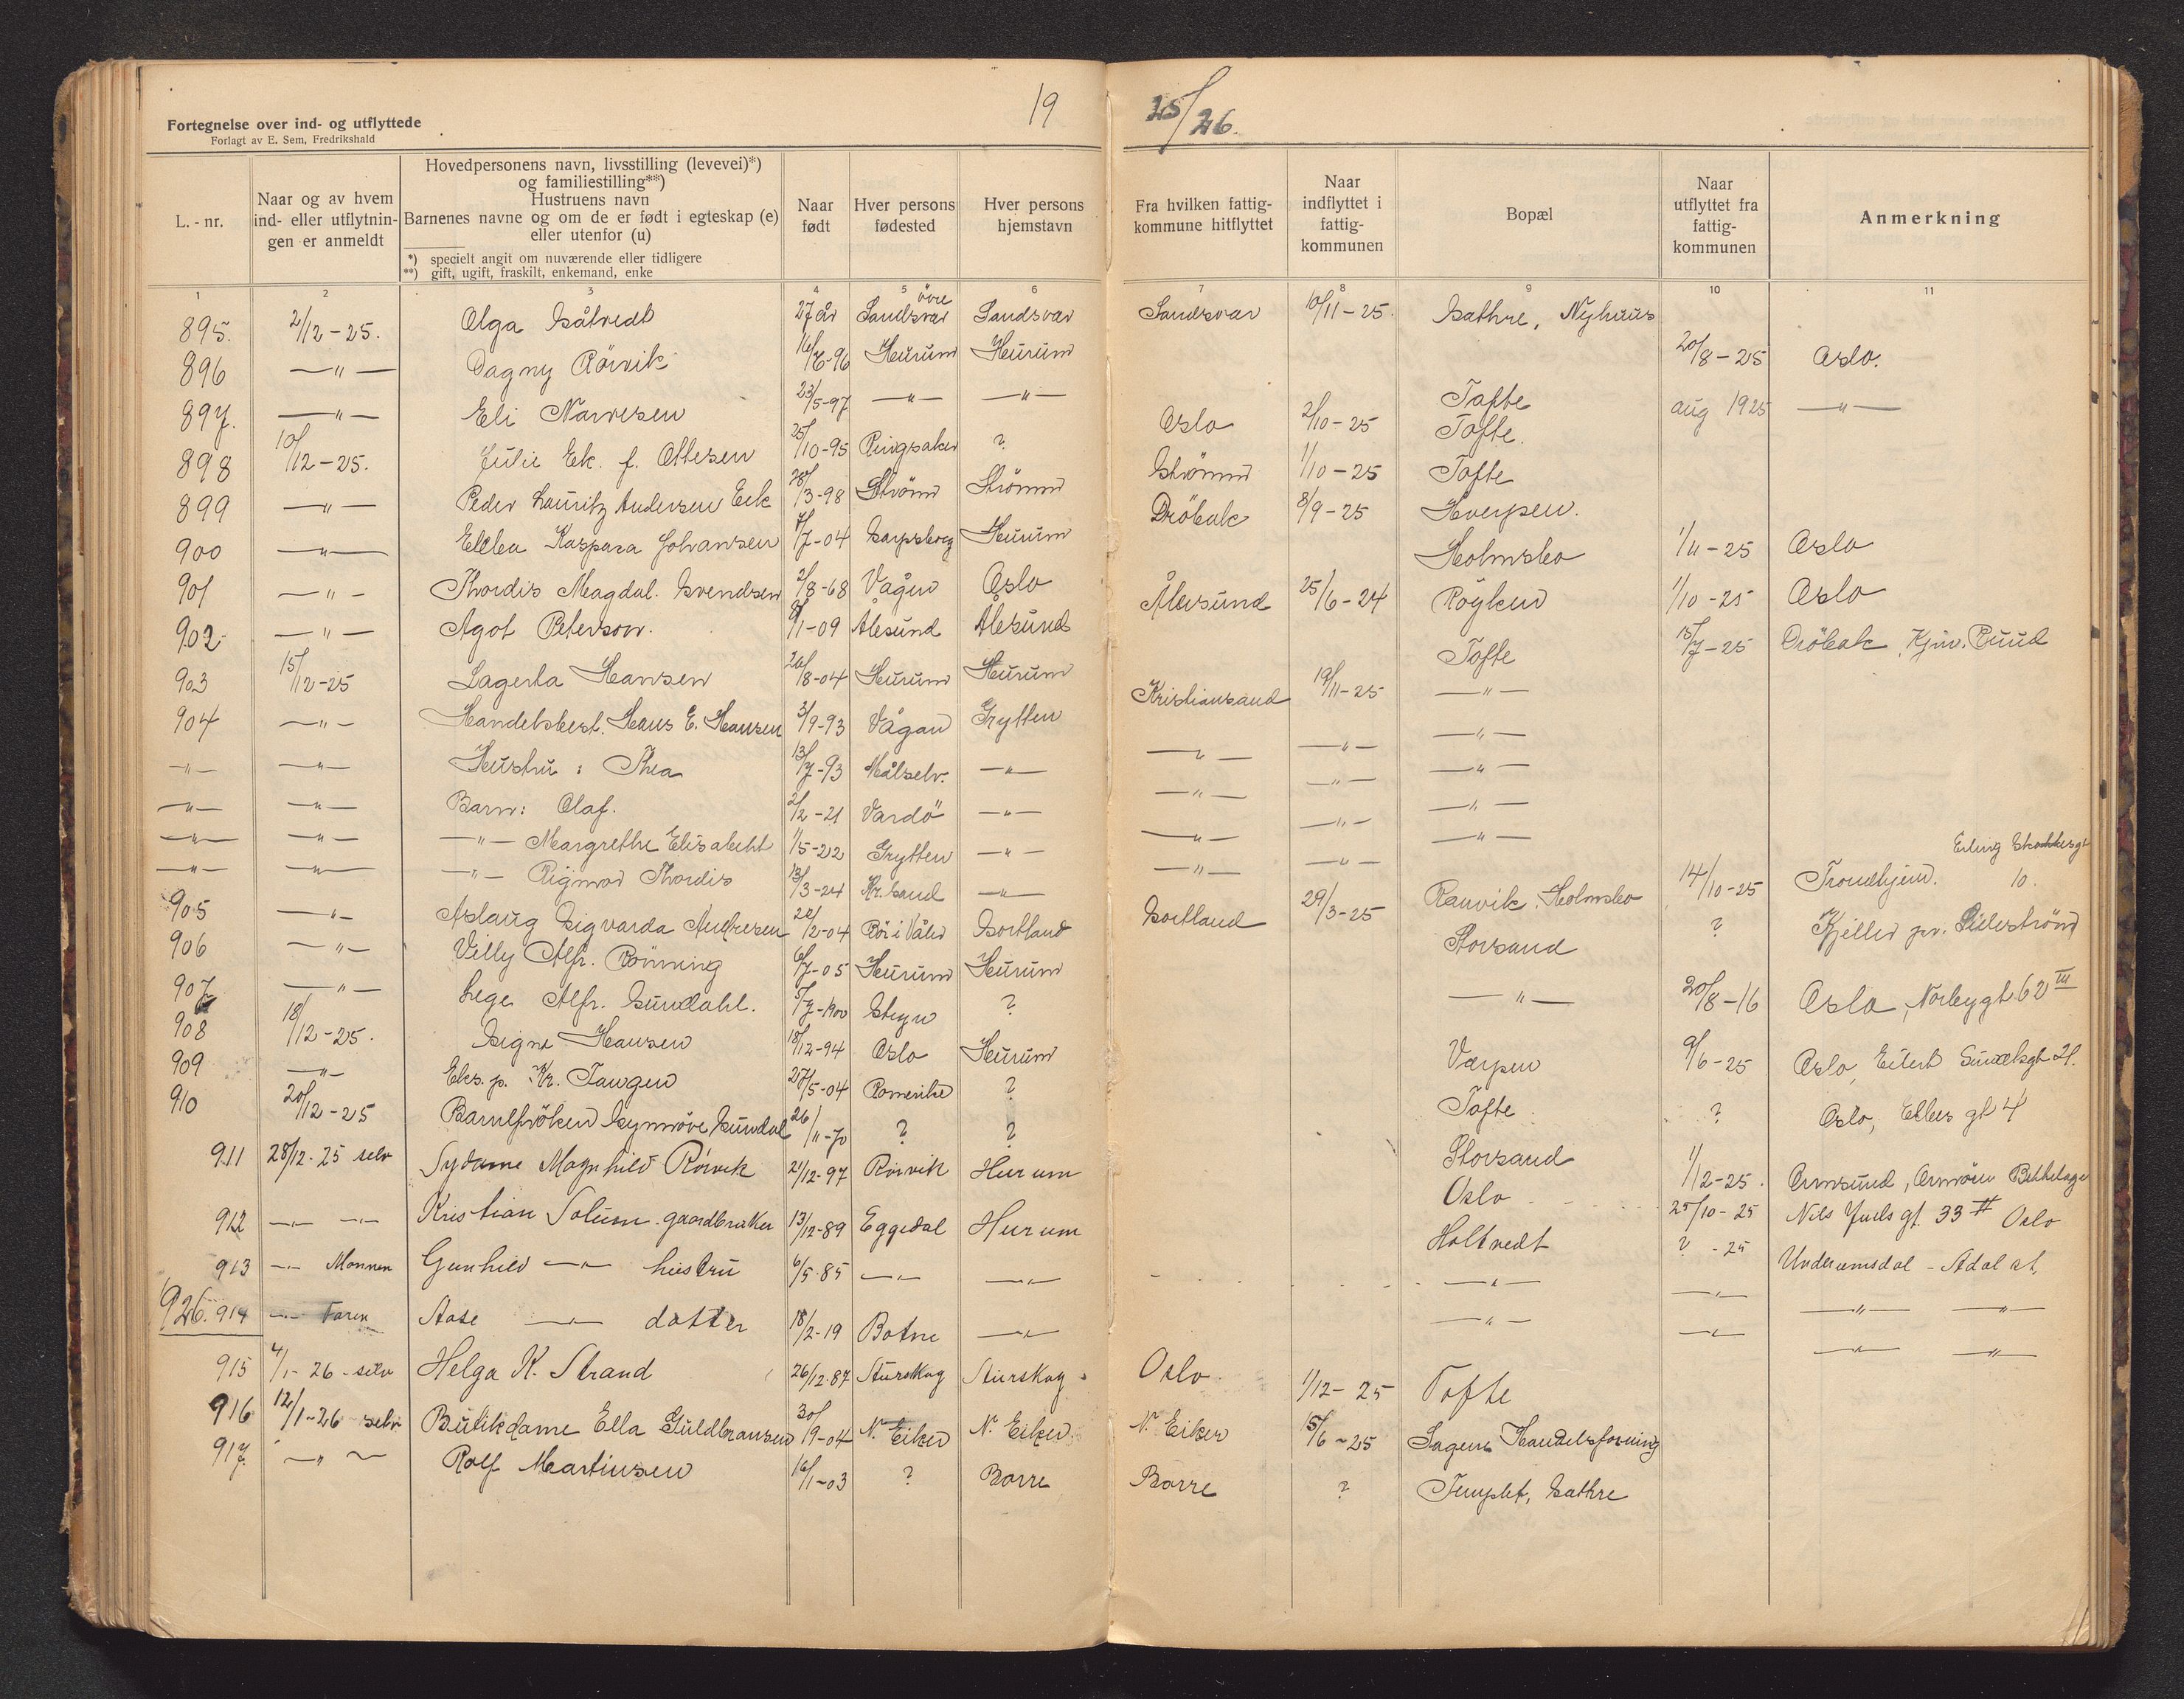 19 25/26.
Fortegnelse over ind- og utflyttede
Forlagt av E. Sem, Fredrikshald
L. - nr.
Naar og av hvem
ind- eller utflytnin-
gen er anmeldt
Hovedpersonens navn, livsstilling (levevei)*)
og familiestilling**)
Hustruens navn
Barnenes navne og om de er født i egteskap (e)
eller utenfor (u)
*) specielt angit om nuværende eller tidligere
**) gift, ugift, fraskilt, enkemand, enke
Naar
født
Hver persons
fødested
Hver persons
hjemstavn
Fra hvilken fattig-
kommune hitflyttet
Naar
indflyttet i
fattig-
kommunen
Bopæl
Naar
utflyttet fra
fattig-
kommunen
Anmerkning
1 2 3 4 5 6 7 8 9 10 11
895. 2/12-25. Olga 27 år øvre Sandsvær Sandsvær Sandsvær 10/11-25. Sæthre, Nyhuus
896 —"— Dagny Rörvik 16/6-96 Hurum Hurum 20/8-25 Oslo.
897. —"— Eli Narvesen 23/5-97 —"— —"— Tofte aug 1925 —"—
898 10/12-25. Julie Ek. f. Ottesen 25/10-95 Ringsaker ? Oslo 2/10-25 Tofte.
899 —"— Peder Lauritz Andersen Eek 28/3-98 Strömm Strömm Strömm 1/10-25 Tofte
900 —"— Ellba Kaspara Johansen 7/7-04 Sarpsborg Hurum Dröbak 8/9-25 Hverpen.
901 —"— Thordis Magdal. Svendsen 2/8-68 Vågen Oslo Holmsbo 1/11-25 Oslo
902 —"— Agot Peterson. 8/1-09 Ålesund Ålesund Ålesund 25/6-24 Röyken 1/10-25 Oslo
903 15/12-25 Lagerta Hansen 20/8-04 Hurum Hurum Tofte 15/7-25 Dröbak, Kjøv. Ruud
904 —"— Handelsbest. Hans E. Hansen 3/9-93 Vågan Grytten Kristiansand 19/11-25 —"—
—"— —"— Hustru: Thea 13/7-93 Målselv. —"— —"— —"— —"—
—"— —"— Barn: Olaf. 2/2-21 Vardö —"— —"— —"— —"—
—"— —"— —"— Margrethe Elisabeht 1/5-22 Grytten —"— —"— —"— —"—
—"— —"— —"— Rigmor Thordis 13/3-24 Kr. sand —"— —"— —"— —"—
905 —"— Aslaug Sigvarda Andresen 22/2-04 Rör i Våler Sortland Sortland 29/3-25 Ranvik, Holmsbo 14/10-25 Trondhjem. Erling 10.
906 —"— Villy Alfr. Rönning 6/7-05 Hurum Hurum Storsand ? Kjeller pr. Lilleström
907 —"— Lege Alfr. Sundahl. 5/7-1900 Stryn ? —"— 20/8-16 Oslo, Norbygt. 62 III
908 18/12-25. Signe Hansen 18/12-94 Oslo Hurum Værpen 9/6-25 Oslo, Eilert Sundtsgt 21.
909 —"— Eks. p. Kr. Tangen 27/5-04 Romerike ? Tofte ? Oslo, Ebbes gt 4
910 20/12-25 Barnefröken Synnöve Sundal 26/11-70 ? ? Storsand 1/12-25. Ormsund, Ormöen Bekkelaget
911 28/12-25 selv Sydame Magnhild Rörvik 21/12-97 Rörvik Hurum Oslo 25/10-25 Nils Juels gt. 33 II Oslo
912 —"— —"— Kristian Solum. gaardbruker 13/12-89 Eggedal Hurum Holtvedt ? -25 Underumsdal - Ådal st.
913 —"— Mannen Gunhild —"— hustru 6/5-85 —"— —"— —"— —"— —"— —"—
926. 914 —"— Faren Aase —"— datter 18/2-19 Botne —"— —"— —"— —"— —"—
915 4/1-26 - selv Helga K. Strand 26/12-87 Aurskog Aurskog Oslo 1/12-25 Tofte
916 12/1-26 selv Butikdame Ella Guldbransen 30/9-04 N. Eiker N. Eiker N. Eiker 15/6-25 Sagene Handelsforening
917. —"— Rolf Martinsen 16/1-03 ? Borre Borre ? Templet, Sæthre